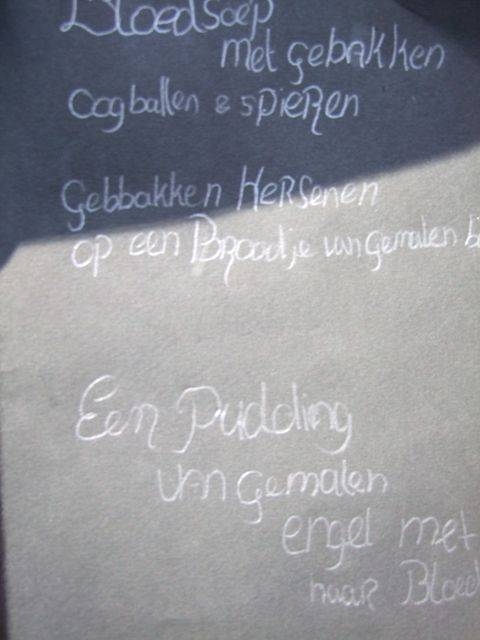 Bloedsoep
met gebakken
Oogballen & spieren
Gebbakken Hersenen
op een Broodje van gemalen
Een Pudding
van gemalen
engel met
haar Bloed